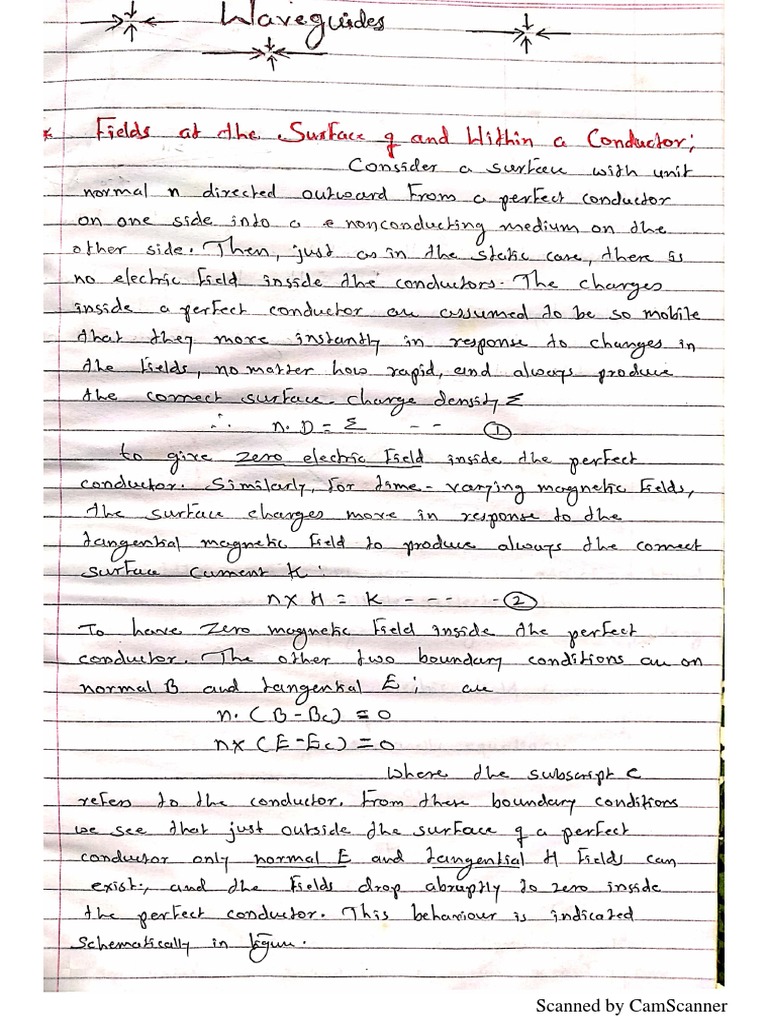 Waveguides
* Fields at the Surface of and Within a Conductor;
Consider a surface with unit
normal n directed outward From a perfect conductor
on one side into a e nonconducting medium on the
other side. Then, just as in the static case, there is
no electric Field inside the conductors. The charges
inside a perfect conductor are assumed to be so mobile
that they move instantly in response to changes in
the Fields, no matter how rapid, and always produce
the correct surface-charge density Σ
∴ n.D = Σ - - ①
to give zero electric Field inside the perfect
conductor. Similarly, For time-varying magnetic Fields,
the surface charges move in response to the
tangential magnetic Field to produce always the correct
surface current K:
n x H = K - - - - ②
To have zero magnetic Field inside the perfect
conductor. The other two boundary conditions are on
normal B and tangential E; are
n. (B-Bc) = 0
nx (E-Ec) = 0
Where the subscript c
refers to the conductor. From these boundary conditions
we see that just outside the surface of a perfect
conductor only normal E and tangential H Fields can
exist, and the Fields drop abruptly to zero inside
the perfect conductor. This behaviour is indicated
schematically in figure.
Scanned by CamScanner